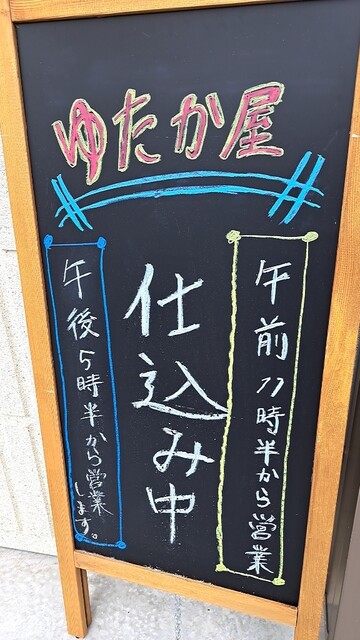 ゆたか屋
午前11時半から営業
仕込み中
午後5時半から営業
します。